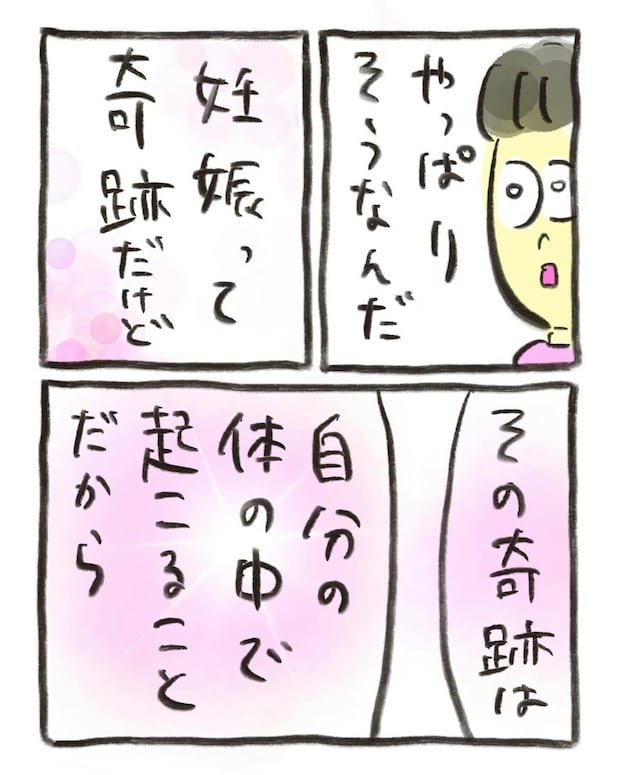 やっぱり
そうなんだ
妊娠って
奇跡だけど
その奇跡は
自分の
体の中で
起こること
だから